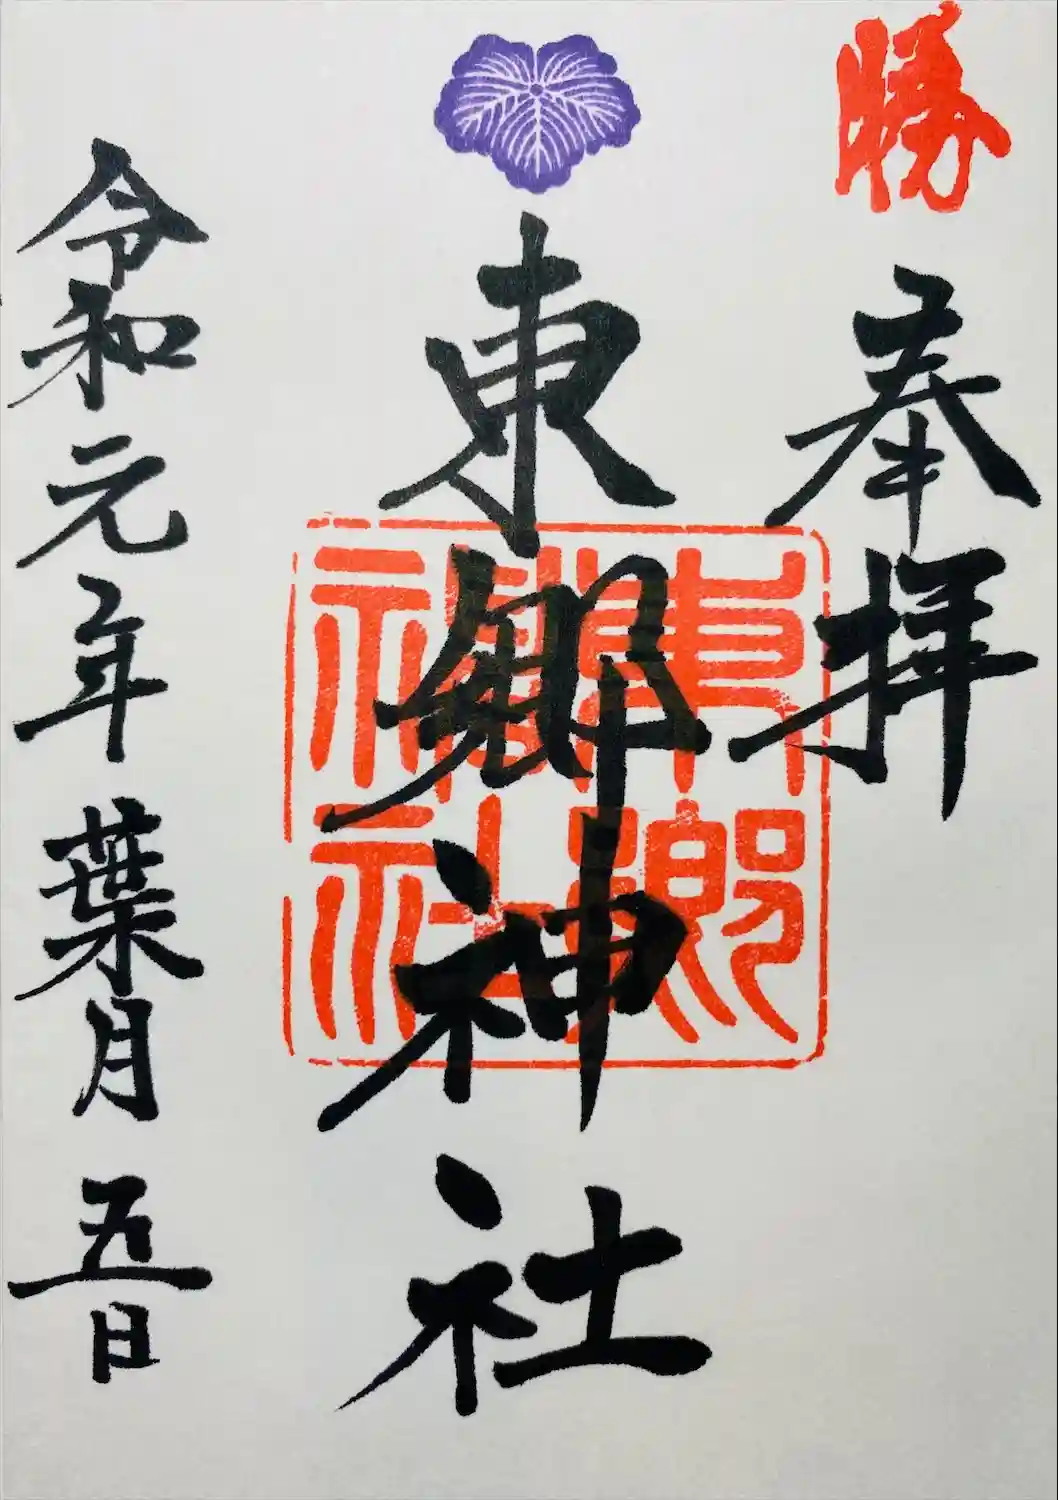 勝
奉拝
東郷神社
東郷神社
令和元年 葉月 五日